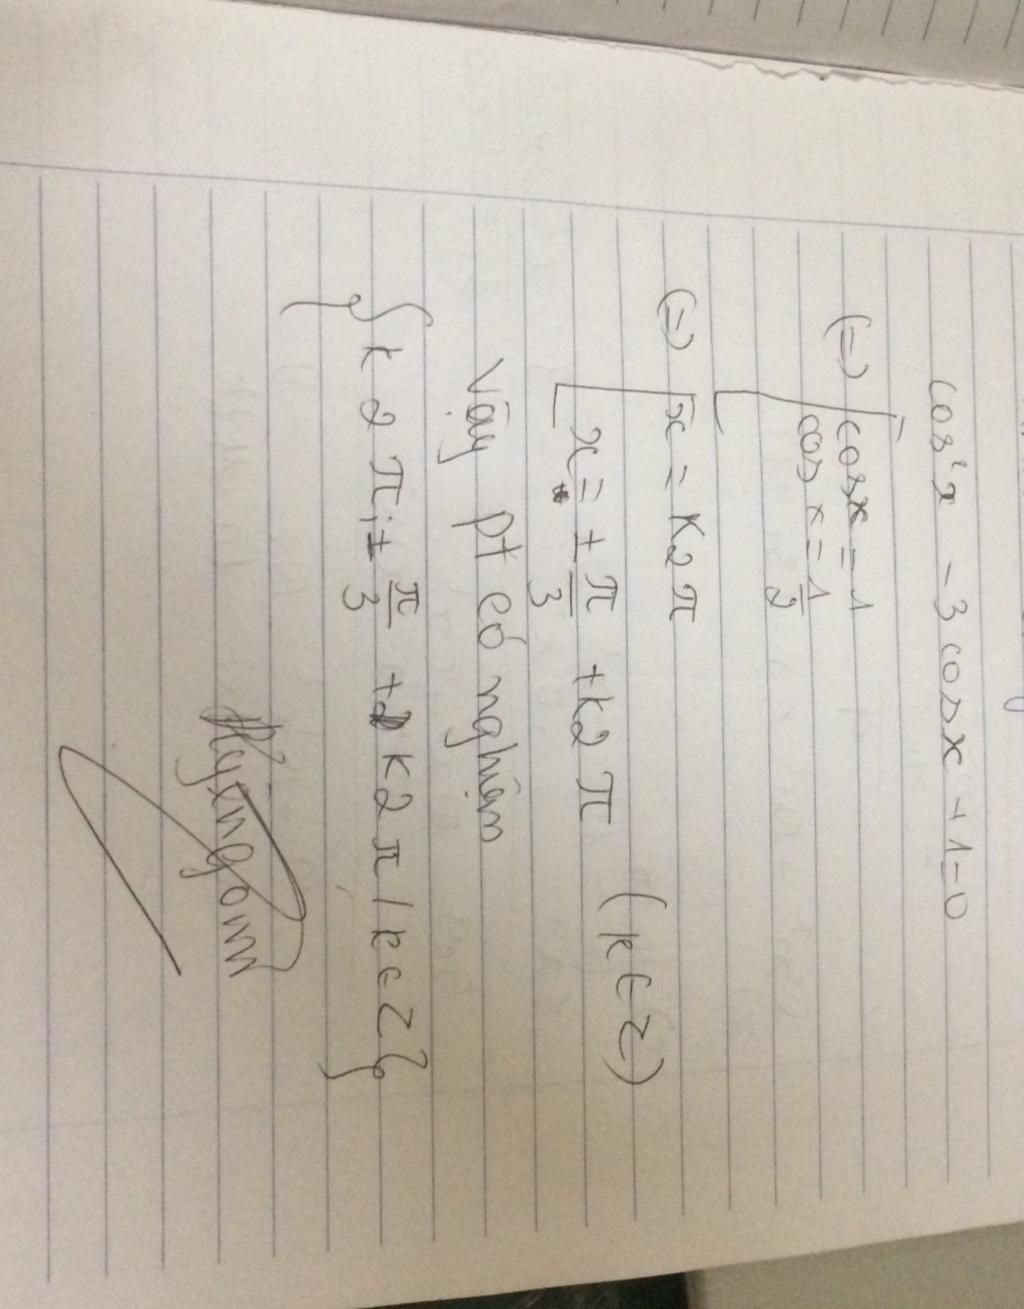 cos²x - 3 cosx + 1 = 0
(=) [ cosx = 1
cos x = 1/2
(=) [ x = k2π
x = ± π/3 + k2π (k ∈ Z)
Vậy pt có nghiệm
{ k2π; ± π/3 + k2π / k ∈ Z }